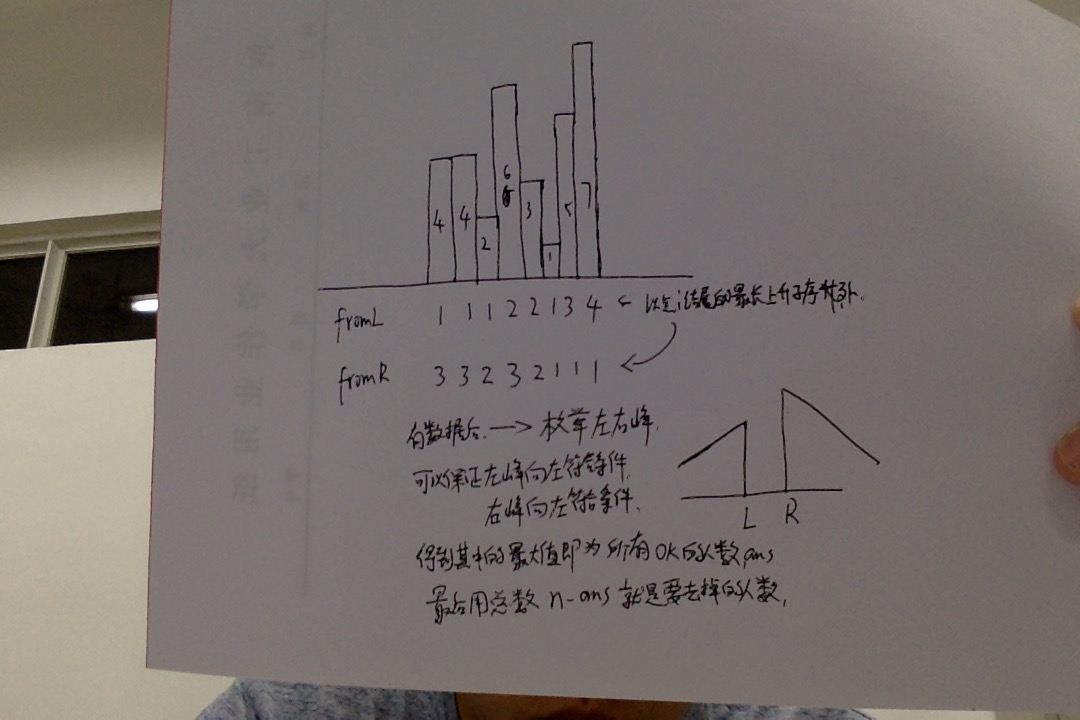 4 4 2 6 3 1 5 7
fromL 1 1 1 2 2 1 3 4 ← 以它i结尾的最长上升子序列.
fromR 3 3 2 3 2 1 1 1 ←
有数据后. → 枚举左右峰.
可以保证左峰向左符合条件.
右峰向左符合条件.
L R
得到其中的最大值即为所有OK的人数ans
最后用总数 n-ans 就是要去掉的人数.